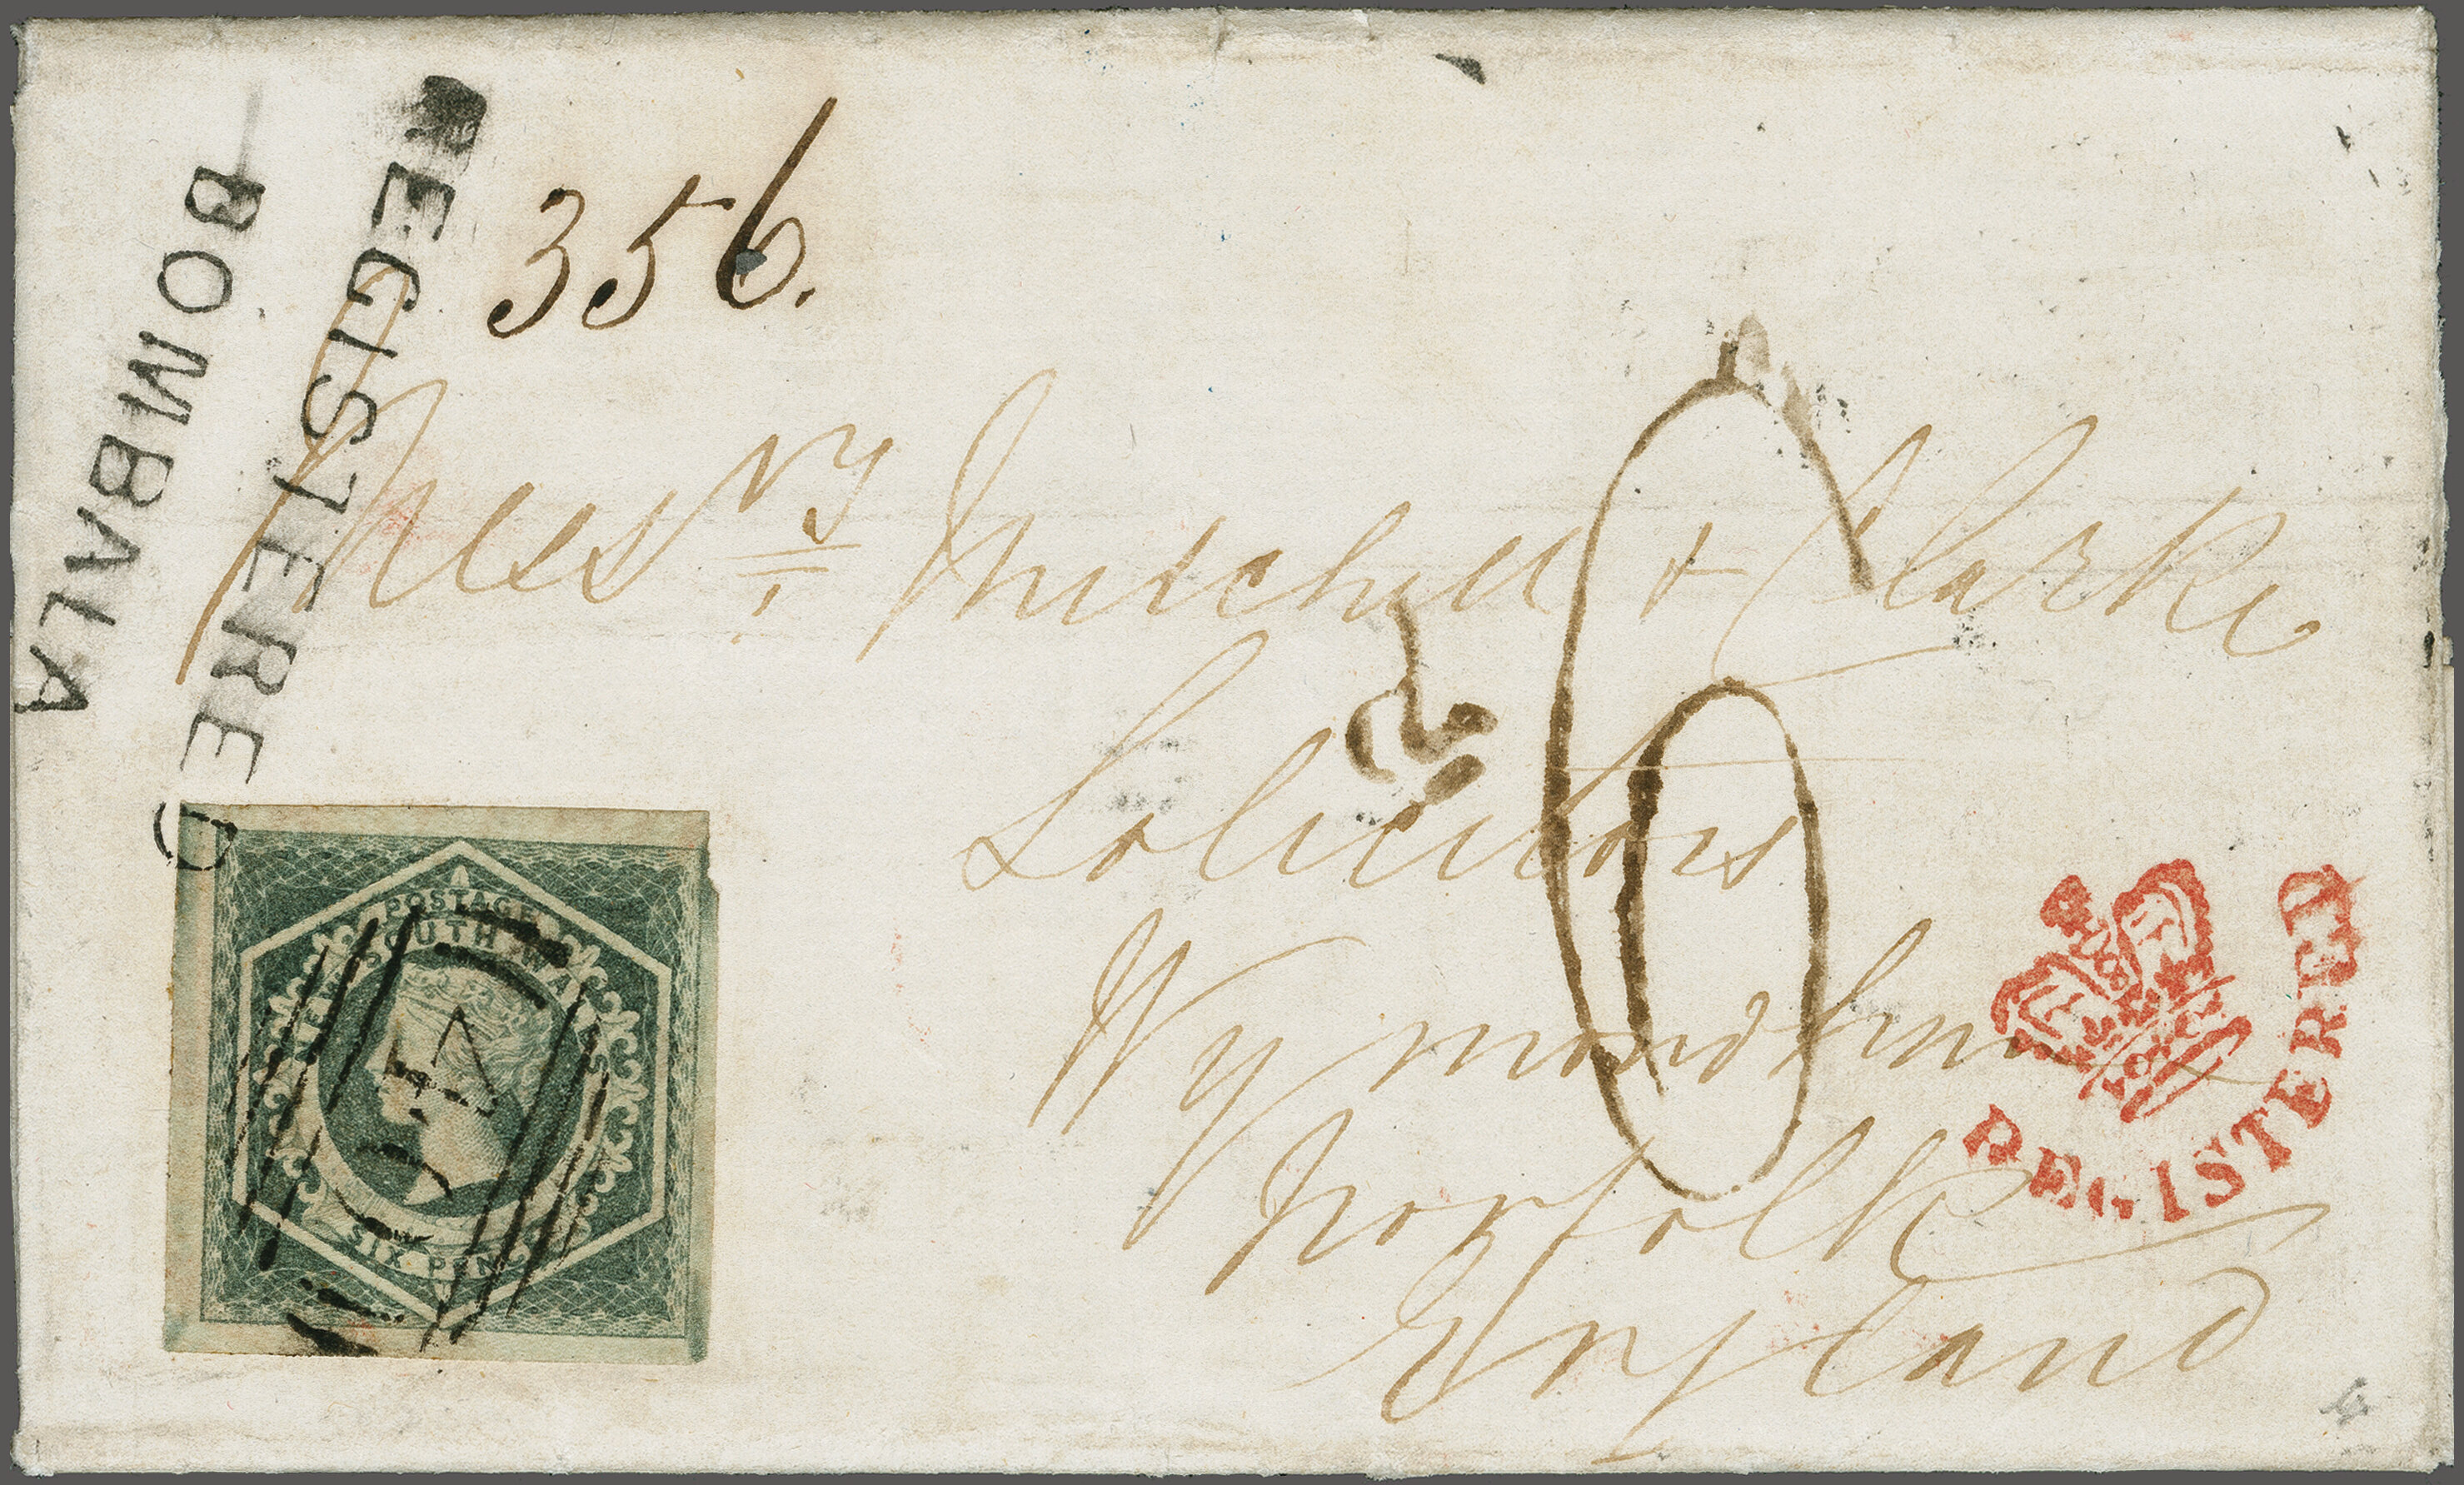 REGISTERED
BOMBALA
356.
Messrs Mitchell + Clarke
Solicitors
Wymondham
Norfolk
England
6
REGISTERED
POSTAGE
NEW SOUTH WALES
SIX PEN